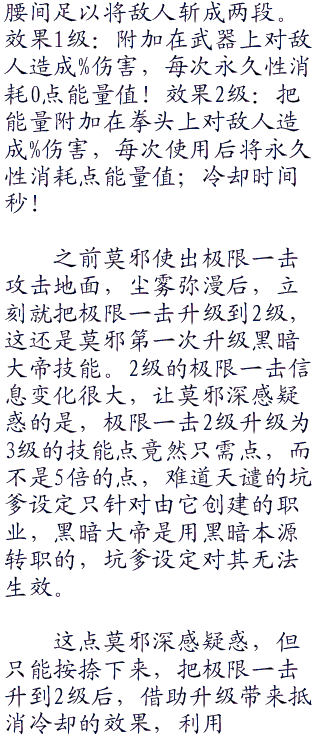 腰间足以将敌人斩成两段。
效果1级：附加在武器上对敌
人造成%伤害，每次永久性消
耗0点能量值！效果2级：把
能量附加在拳头上对敌人造
成%伤害，每次使用后将永久
性消耗点能量值；冷却时间
秒！
之前莫邪使出极限一击
攻击地面，尘雾弥漫后，立
刻就把极限一击升级到2级，
这还是莫邪第一次升级黑暗
大帝技能。2级的极限一击信
息变化很大，让莫邪深感疑
惑的是，极限一击2级升级为
3级的技能点竟然只需点，而
不是5倍的点，难道天谴的坑
爹设定只针对由它创建的职
业，黑暗大帝是用黑暗本源
转职的，坑爹设定对其无法
生效。
这点莫邪深感疑惑，但
只能按捺下来，把极限一击
升到2级后，借助升级带来抵
消冷却的效果，利用